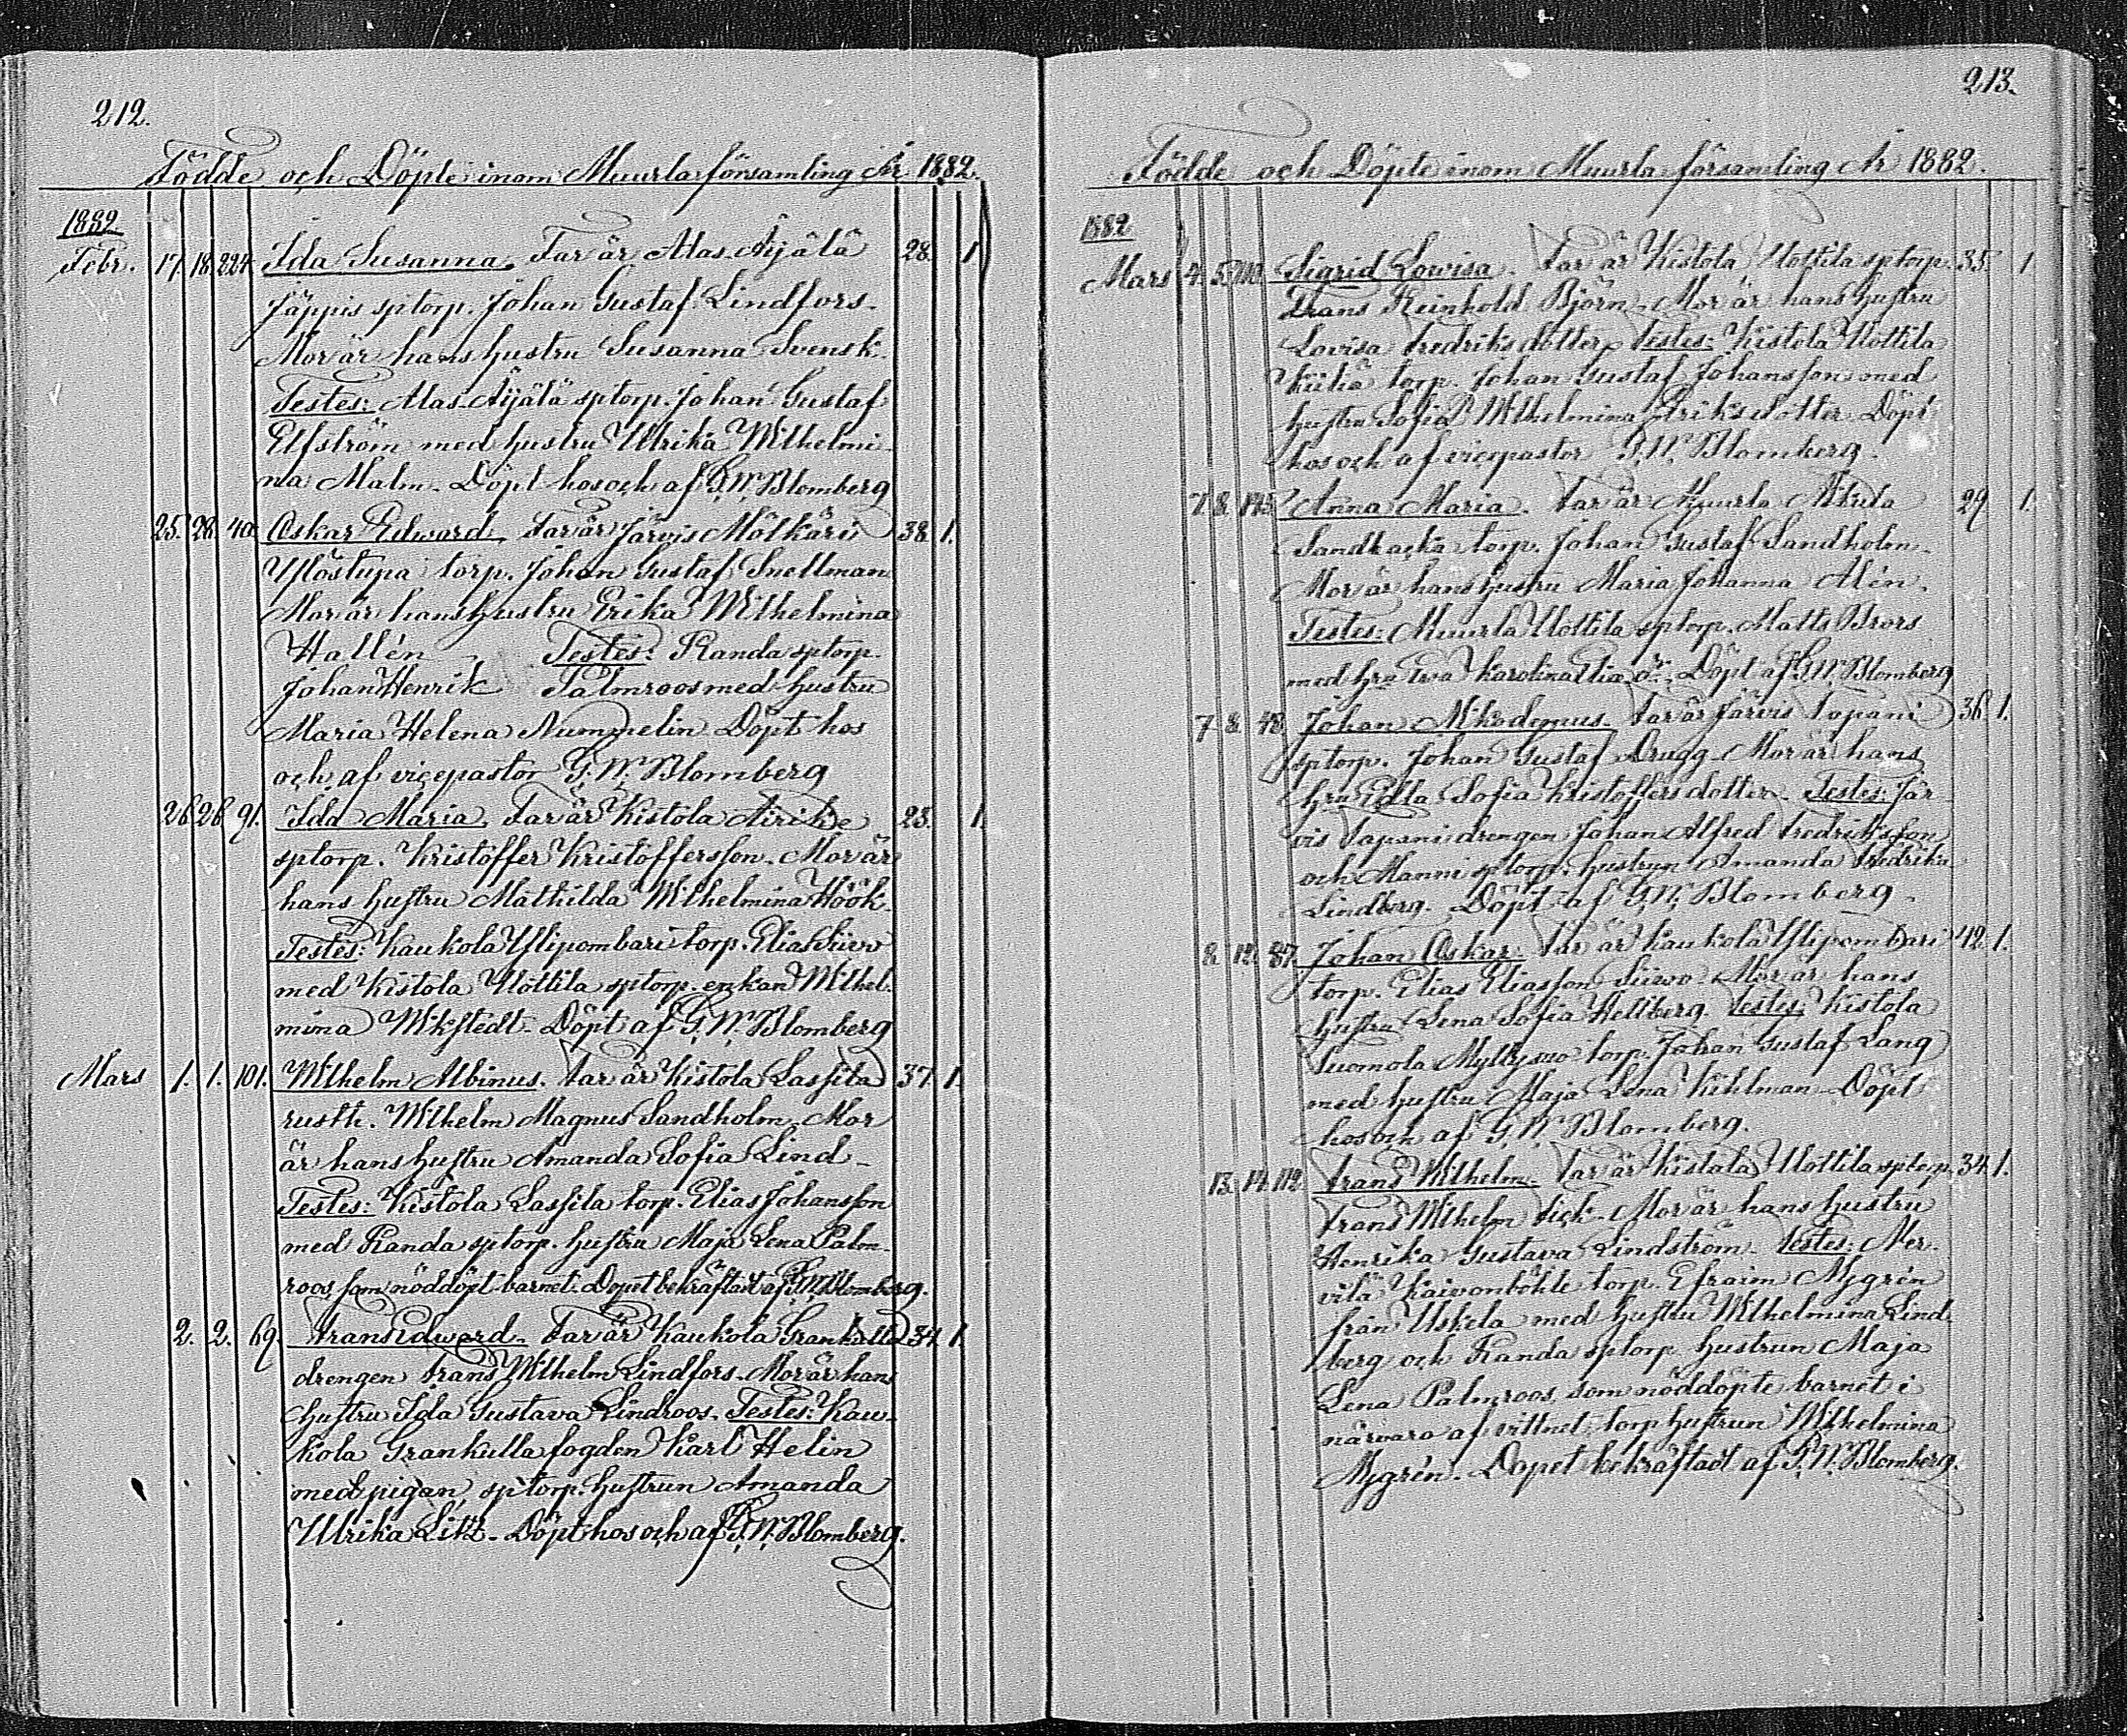 212.
Födde och Döpte inom Muurla församling År 1882.
1882
Febr. 17. 18. 224. Ida Susanna. Far är Alas Äijälä 28. 1
Jäppis sptorp. Johan Gustaf Lindfors.
Mor är hans hustru Susanna Svensk.
Testes: Alas Äijälä sptorp. Johan Gustaf
Elfström med hustru Ulrika Wilhelmi-
na Malm. Döpt hos och af G. W. Blomberg
25. 28. 40. Oskar Edward. Far är Järvis Mölkäri 38. 1.
Ylöstupa torp. Johan Gustaf Snellman
Mor är hans hustru Erika Wilhelmina
Hallén Testes: Randa sptorp.
Johan Henrik Palmroos med hustru
Maria Helena Nummelin Döpt hos
och af vicepastor G. W. Blomberg
26. 26. 91. Ida Maria. Far är Kistola Airikke 23. 1.
sptorp. Kristoffer Kristoffersson. Mor är
hans hustru Mathilda Wilhelmina Höök.
Testes: Kaukola Ylipombari torp. Elias Siivo
med Kistola Uottila sptorp. enkan Wilhel-
mina Wikstedt. Döpt af G. W. Blomberg
Mars 1. 1. 101. Wilhelm Albinus. Far är Kistola Lassila 37. 1.
rusth. Wilhelm Magnus Sandholm. Mor
är hans hustru Amanda Sofia Lind.
Testes: Kistola Lassila torp. Elias Johansson
med Randa sptorp. hustru Maja Lena Palm-
roos, som nöddöpt barnet. Dopet bekräftadt af G. W. Blomberg.
2. 2. 69. Frans Edward. Far är Kaukola Grankulla 34. 1.
drengen Frans Wilhelm Lindfors. Mor är hans
hustru Ida Gustava Lindroos. Testes: Kau-
kola Grankulla fogden Karl Helin
med pigan, sptorp. hustrun Amanda
Ulrika Litz. Döpt hos och af G. W. Blomberg.
213.
Födde och Döpte inom Muurla församling År 1882.
1882
Mars 4. 5. 110. Sigrid Lowisa. Far är Kistola Uottila sptorp. 35. 1
Frans Reinhold Björn. Mor är hans hustru
Lovisa Fredriksdotter. Testes: Kistola Uottila
Kiiliä torp. Johan Gustaf Johansson med
hustru Sofia Wilhelmina Eriksdotter Döpt
hos och af vicepastor G. W. Blomberg.
7. 8. Anna Maria. Far är Muurla 29 1.
Sandbacka torp. Johan Gustaf Sandholm.
Mor är hans hustru Maria Johanna Alén.
Testes: Muurla Uottila sptorp. Matts Brors
med hru Eva Karolina Elia dr. Döpt af G. W. Blomberg
7. 8. 48. Johan Nikodemus. Far är Järvis Tapani 36 1.
sptorp. Johan Gustaf Drugg. Mor är hans
hru Edla Sofia Kristoffersdotter. Testes: Jär-
vis Tapani drengen Johan Alfred Fredriksson
och Manni sptorp. hustrun Amanda Fredrika
Lindberg. Döpt af G. W. Blomberg.
8. 12. 87. Johan Oskar. Far är Kaukola Ylipombari 42. 1.
torp. Elias Eliasson Siiwo. Mor är hans
hustru Lena Sofia Hellberg. Testes: Kistola
Suomola Myllysuo torp. Johan Gustaf Lang
med hustru Maja Lena Kihlman Döpt
hos och af G. W. Blomberg.
13. 14. 112. Frans Wilhelm. Far är Kistola Uottila sptorp. 34. 1.
Frans Wilhelm Fick. Mor är hans hustru
Henrika Gustava Lindström. Testes: Mer-
vilä torp. Efraim Mygrén
från Uskela med hustru Wilhelmina Lind-
berg och Randa sptorp. hustrun Maja
Lena Palmroos, som nöddöpte barnet i
närvaro af vittnet, torp. hustrun Wilhelmina
Mygrén. Dopet bekräftadt af G. W. Blomberg.